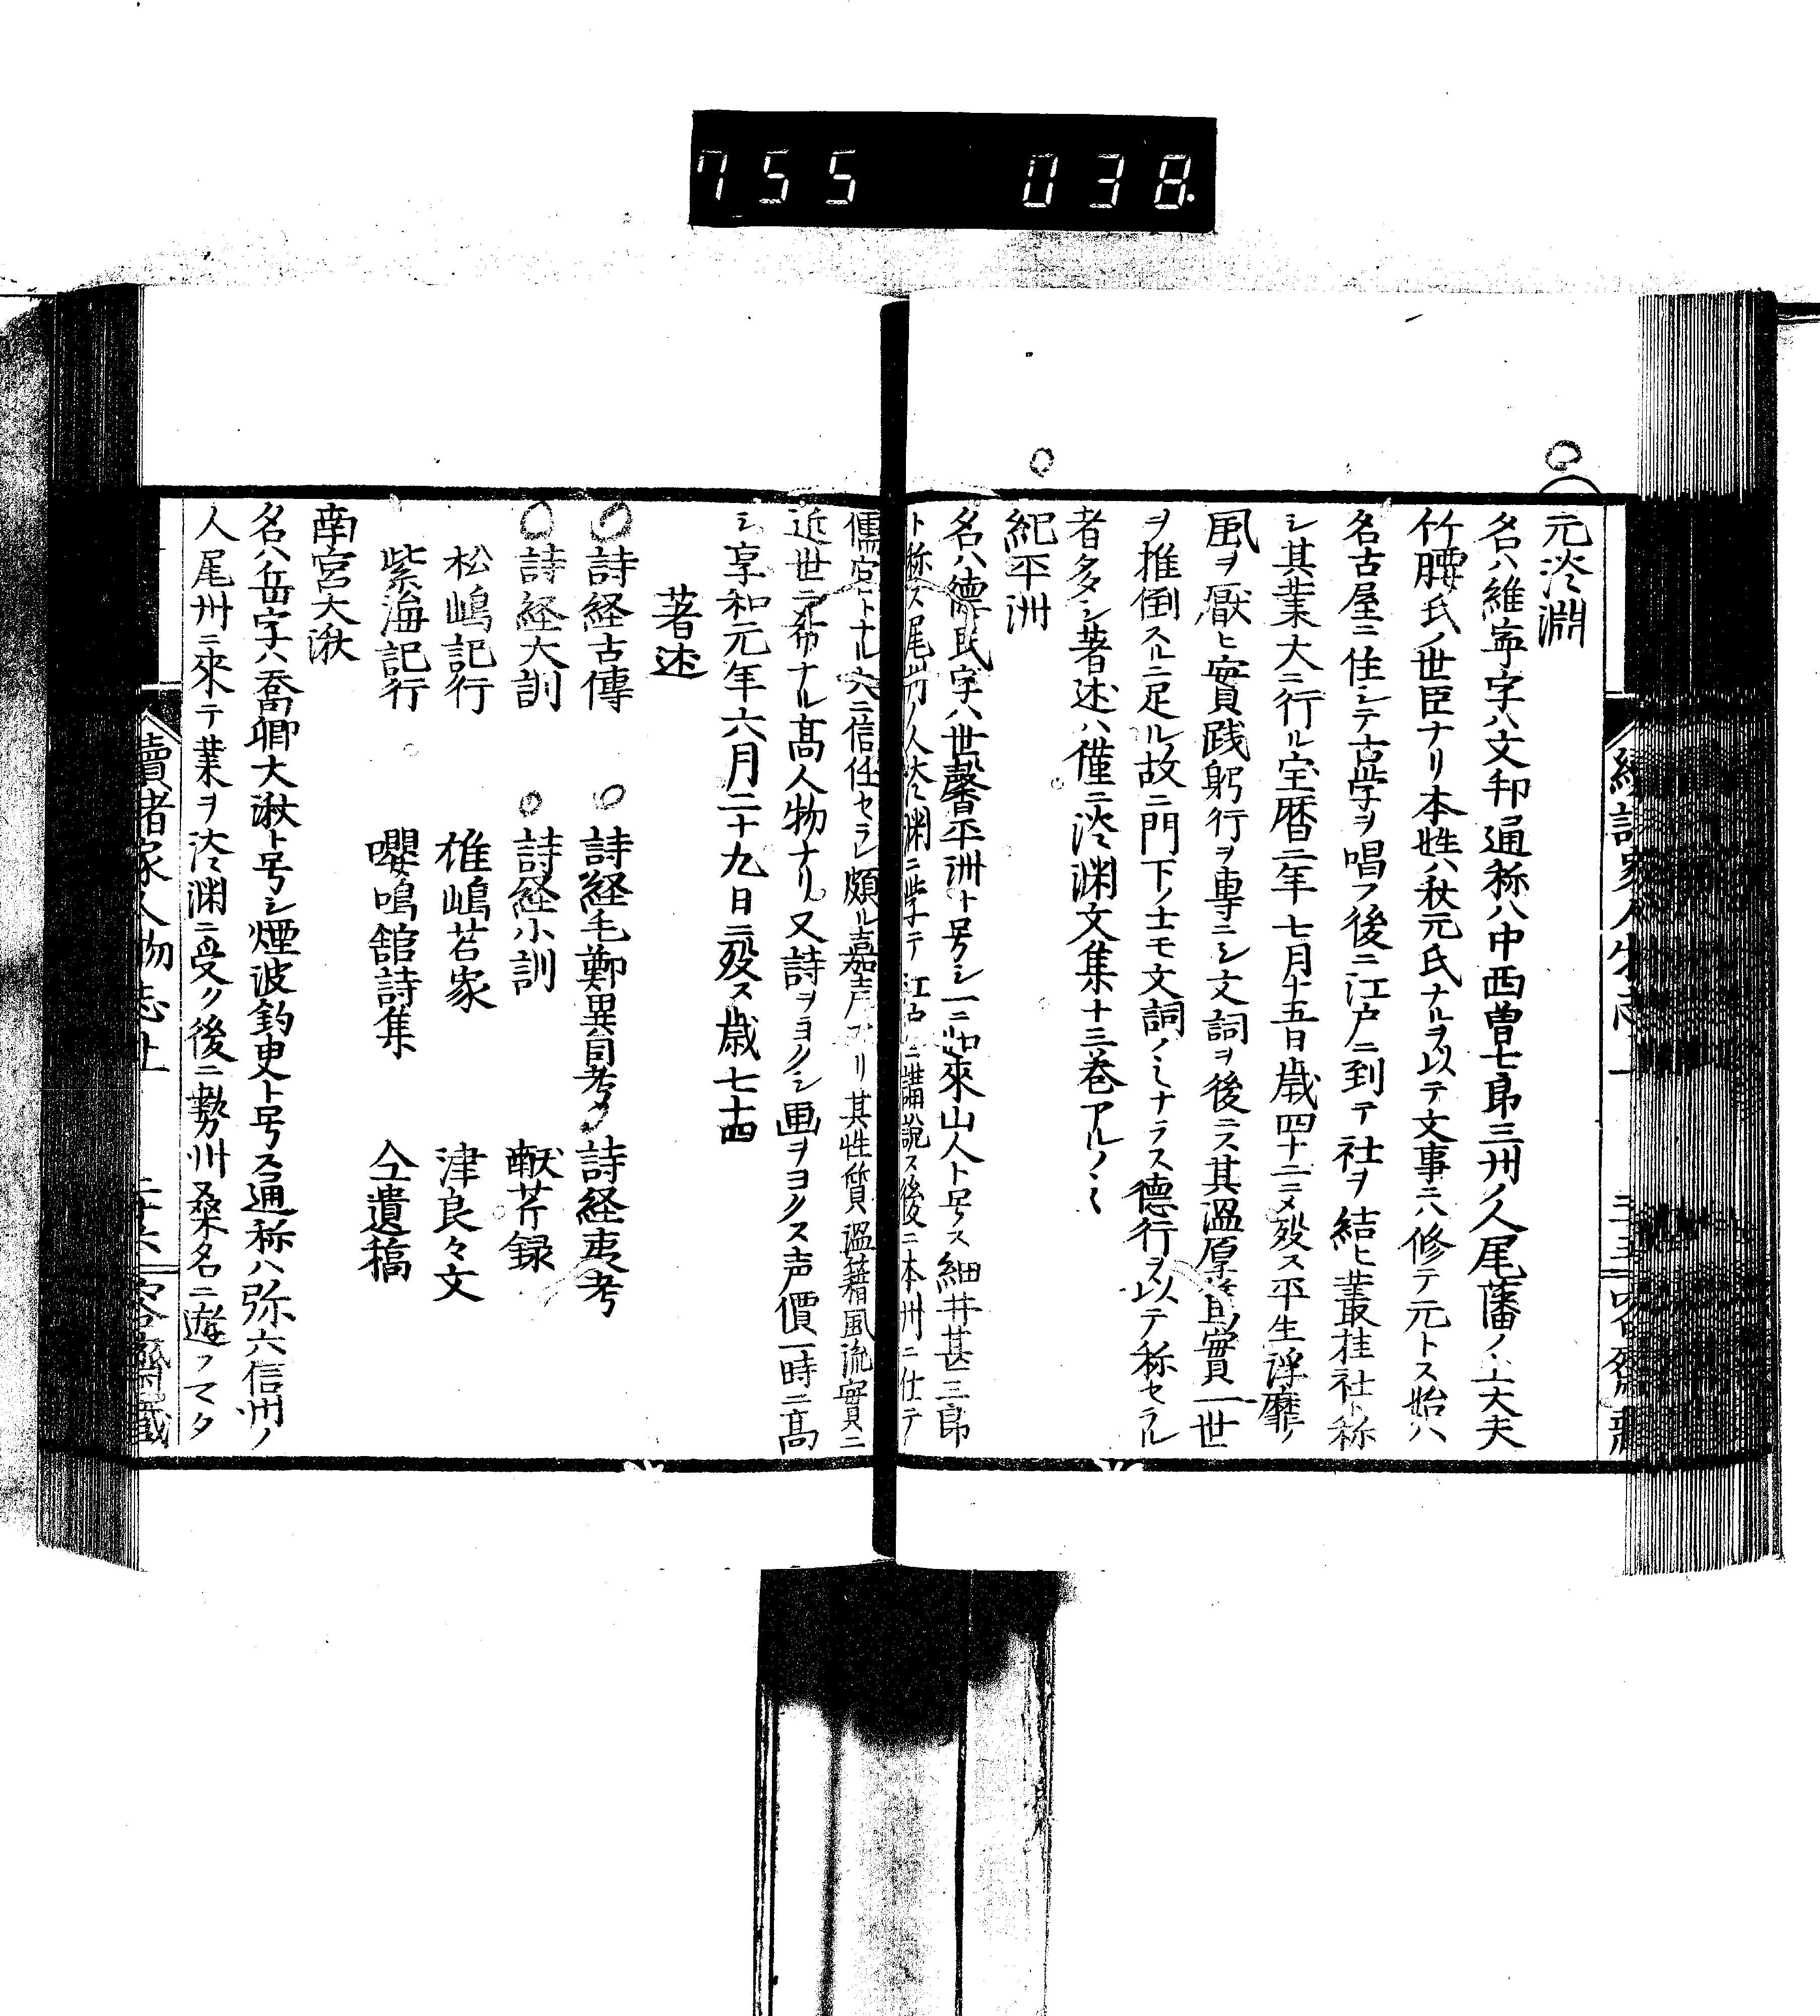 755 038
元淡淵
名ハ維寧字ハ文邦通称ハ中西曽七郎三州ノ人尾藩ノ上大夫
竹腰氏ノ世臣ナリ本姓ハ秋元氏ナルヲ以テ文事ニハ修テ元トス始ハ
名古屋ニ住シテ古学ヲ唱フ後ニ江戸ニ到テ社ヲ結ヒ叢桂社ト称
シ其業大ニ行ル宝暦二年七月十五日歳四十二ニメ歿ス平生浮靡ノ
風ヲ厭ヒ實践躬行ヲ専ニシ文詞ヲ後ニス其温厚篤實一世
ヲ推倒スルニ足ル故ニ門下ノ士モ文詞ノミナラス德行ヲ以テ称セラル
者多シ著述ハ僅ニ淡渊文集十三巻アルノミ
紀平洲
名ハ德民字ハ世馨平洲ト号シ一ニ如來山人ト号ス細井甚三郎
ト称ス尾州ノ人淡渊ニ学テ江戸ニ講説ス後ニ本州ニ仕テ
儒官トナル大ニ信任セラレ頗ル嘉声アリ其性質温藉風流實ニ
近世ニ希ナル髙人物ナリ又詩ヲヨクシ画ヲヨクス声價一時ニ髙
シ享和元年六月二十九日ニ歿ス歳七十四
著述
詩経古傳 詩経毛鄭異同考 詩経夷考
詩経大訓 詩経小訓 献芹録
松嶋記行 雄嶋苔家 津良々文
紫海記行 嚶鳴舘詩集 仝遺稿
南宮大湫
名ハ岳字ハ喬卿大湫ト号シ煙波釣叟ト号ス通称ハ弥六信州ノ
人尾州ニ來テ業ヲ淡渊ニ受ク後ニ勢州桑名ニ遊フマタ
續諸家人物志上